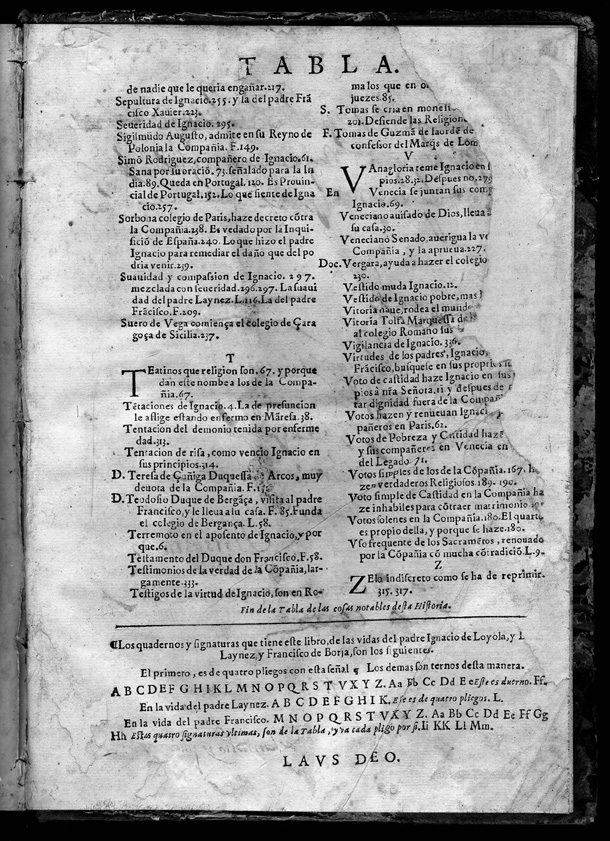 TABLA.
de nadie que le queria engañar.217.
Sepultura de Ignacio.255. y la del padre Frã
cisco Xauier.223.
Seueridad de Ignacio. 295.
Sigismũdo Augusto, admite en su Reyno de
Polonia la Compañia. F.149.
Simõ Rodriguez, compañero de Ignacio.61.
Sana por su oració. 73. señalado para la In
dia.89. Queda en Portugal. 120. Es Prouin
cial de Portugal.152. Lo que siente de Igna
cio.257.
Sorbona colegio de Paris, haze decreto cõtra
la Compañia.238. Es vedado por la Inqui
sició de España.240. Lo que hizo el padre
Ignacio para remediar el daño que del po
dria venir.239.
Suauidad y compassion de Ignacio. 297.
mezclada con seueridad.296.297. La suaui
dad del padre Laynez. L.116. La del padre
Frãcisco. F.209.
Suero de Vega comiença el colegio de Çara
goça de Sicilia.237.
T
TEatinos que religion son. 67. y porque
dan este nombe a los de la Compa-
ñia.67.
Tẽtaciones de Ignacio.4. La de presuncion
le aflige estando enfermo en Mãresa.38.
Tentacion del demonio tenida por enferme
dad.313.
Tentacion de risa, como vencio Ignacio en
sus principios.314.
D. Teresa de Çuñiga Duquessa de Arcos, muy
deuota de la Compañia. F.
D. Teodosio Duque de Bergãça, visita al padre
Francisco, y le lleua a su casa. F. 85. Funda
el colegio de Bergança. L.58.
Terremoto en el aposento de Ignacio, y por
que.6.
Testamento del Duque don Francisco. F.58.
Testimonios de la verdad de la Cõpañia, lar-
gamente.333.
Testigos de la virtud de Ignacio, son en Ro-
ma los que en
juezes.85.
S. Tomas se cria en
201. Desiende las
F. Tomas de Guzmã de la ordẽ de
confesor del Marqs de
V
VAnagloria teme Ignacio en
pios.28.32. Despues no.
En Venecia se juntan sus
Ignacio.69.
Veneciano auisado de Dios, lleua
su casa.30.
Veneciano Senado, auerigua la
Compañia, y la aprueua.227.
Doc. Vergara, ayuda a hazer el colegio
230.
Vestido muda Ignacio.12.
Vestido de Ignacio pobre,
Vitoria naue, rodea el
Vitoria Tolfa Marquessa
al colegio Romano
Vigilancia de Ignacio. 336.
Virtudes de los padres, Ignacio,
Frãcisco, busquese en sus
Voto de castidad haze Ignacio en
pios a nr̃a Señora.11 y despues de
tar dignidad fuera de la
Votos hazen y renueuan
pañeros en Paris.62.
Votos de Pobreza y Castidad
y sus compañeros en Venecia en
del Legado. 71.
Votos simples de los de la Cõpañia.167.
zen verdaderos Religiosos. 189. 190.
Voto simple de Castidad en la Compañia ha
ze inhabiles para cõtraer matrimonio
Votos solenes en la Compañia.180. El quarto
es propio della, y porque se haze.180.
Vso frequente de los Sacramẽtos, renouado
por la Cõpañia cõ mucha cõtradició. L.9.
Z
ZElo indiscreto como se ha de reprimir.
315. 317.
Fin de la Tabla de las cosas notables desta Historia.
¶Los quadernos y signaturas que tiene este libro, de las vidas del padre Ignacio de Loyola, y
Laynez, y Francisco de Borja, son los siguientes.
El primero, es de quatro pliegos con esta señal ¶ Los demas son ternos desta manera.
A B C D E F G H I K L M N O P Q R S T V X Y Z. Aa Bb Cc Dd Ee Este es duerno. Ff.
En la vida del padre Laynez. A B C D E F G H I K. Ese es de quatro pliegos. L.
En la vida del padre Francisco. M N O P Q R S T V X Y Z. Aa Bb Cc Dd Ee Ff Gg
Hh Estas quatro signaturas vltimas, son de la Tabla, y va cada pliego por si. Ii KK Ll Mm.
LAVS DEO.